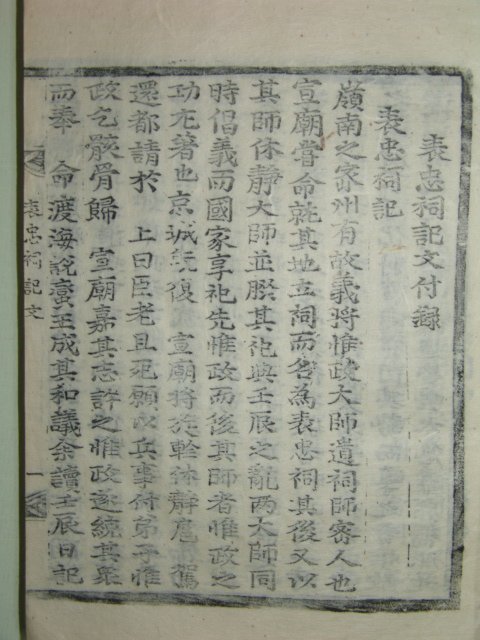 表忠祠記文付錄
表忠祠記
嶺南之密州有故義將惟政大師遺祠師密人也
宣廟嘗命就其地立祠而名為表忠祠其後又以
其師休靜大師並腏其祀典壬辰之亂兩大師同
時倡義而國家享祀先惟政而後其師者惟政之
功尤著也京城旣復 宣廟將旋軫休靜扈 駕
還都請於 上曰臣老且死願以兵事付弟子惟
政乞骸骨歸 宣廟嘉其志許之惟政遂統其衆
而奉 命渡海說蠻王成其和議余讀壬辰日記
表忠祠記文 一